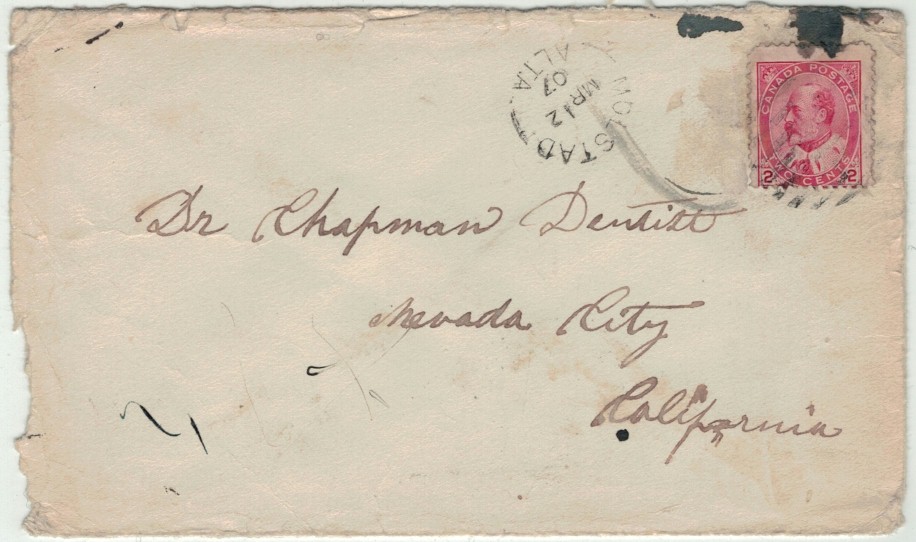 MOLSTAD
ALTA
MR 12
07
CANADA POSTAGE
2 TWO CENTS 2
Dr Chapman Dentist
Nevada City
California